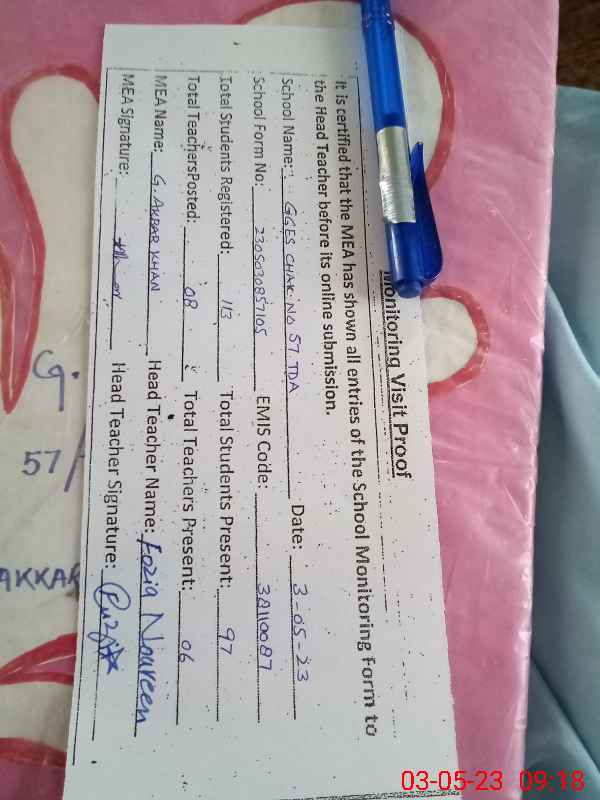 Monitoring Visit Proof
It is certified that the MEA has shown all entries of the School Monitoring Form to
the Head Teacher before its online submission.
School Name: GGES CHAK NO 57. TDA Date: 3-05-23
School Form No: 2305030857105 EMIS Code: 3A110087
Total Students Registered: 113 Total Students Present: 97
Total TeachersPosted: 08 Total Teachers Present: 06
MEA Name: G. AKBAR KHAN Head Teacher Name: Fozia Noureen
MEA Signature: Head Teacher Signature:
G.
57/
AKKAR
03-05-23 09:18